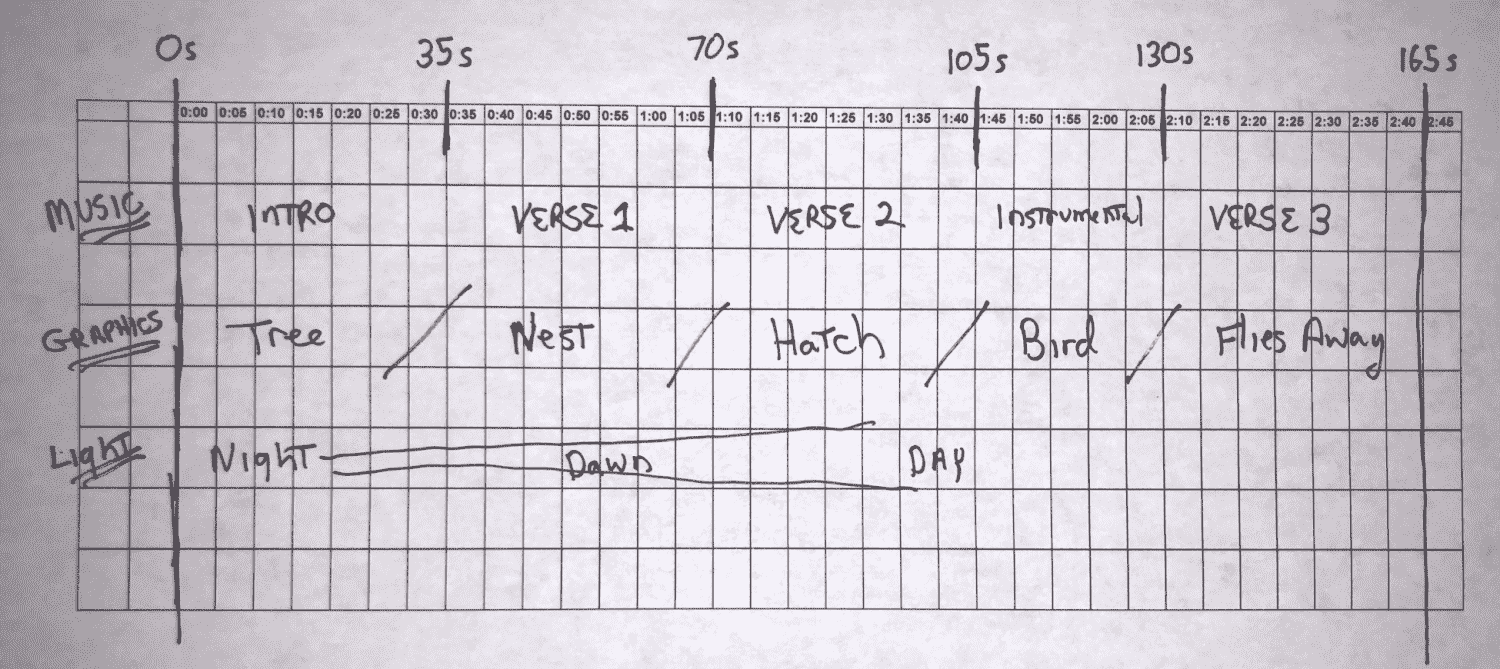 0s 35s 70s 105s 130s 165s
0:00 0:05 0:10 0:15 0:20 0:25 0:30 0:35 0:40 0:45 0:50 0:55 1:00 1:05 1:10 1:15 1:20 1:25 1:30 1:35 1:40 1:45 1:50 1:55 2:00 2:05 2:10 2:15 2:20 2:25 2:30 2:35 2:40 2:45
MUSIC INTRO VERSE 1 VERSE 2 Instrumental VERSE 3
GRAPHICS Tree / Nest / Hatch / Bird / Flies Away
Light Night Dawn DAY